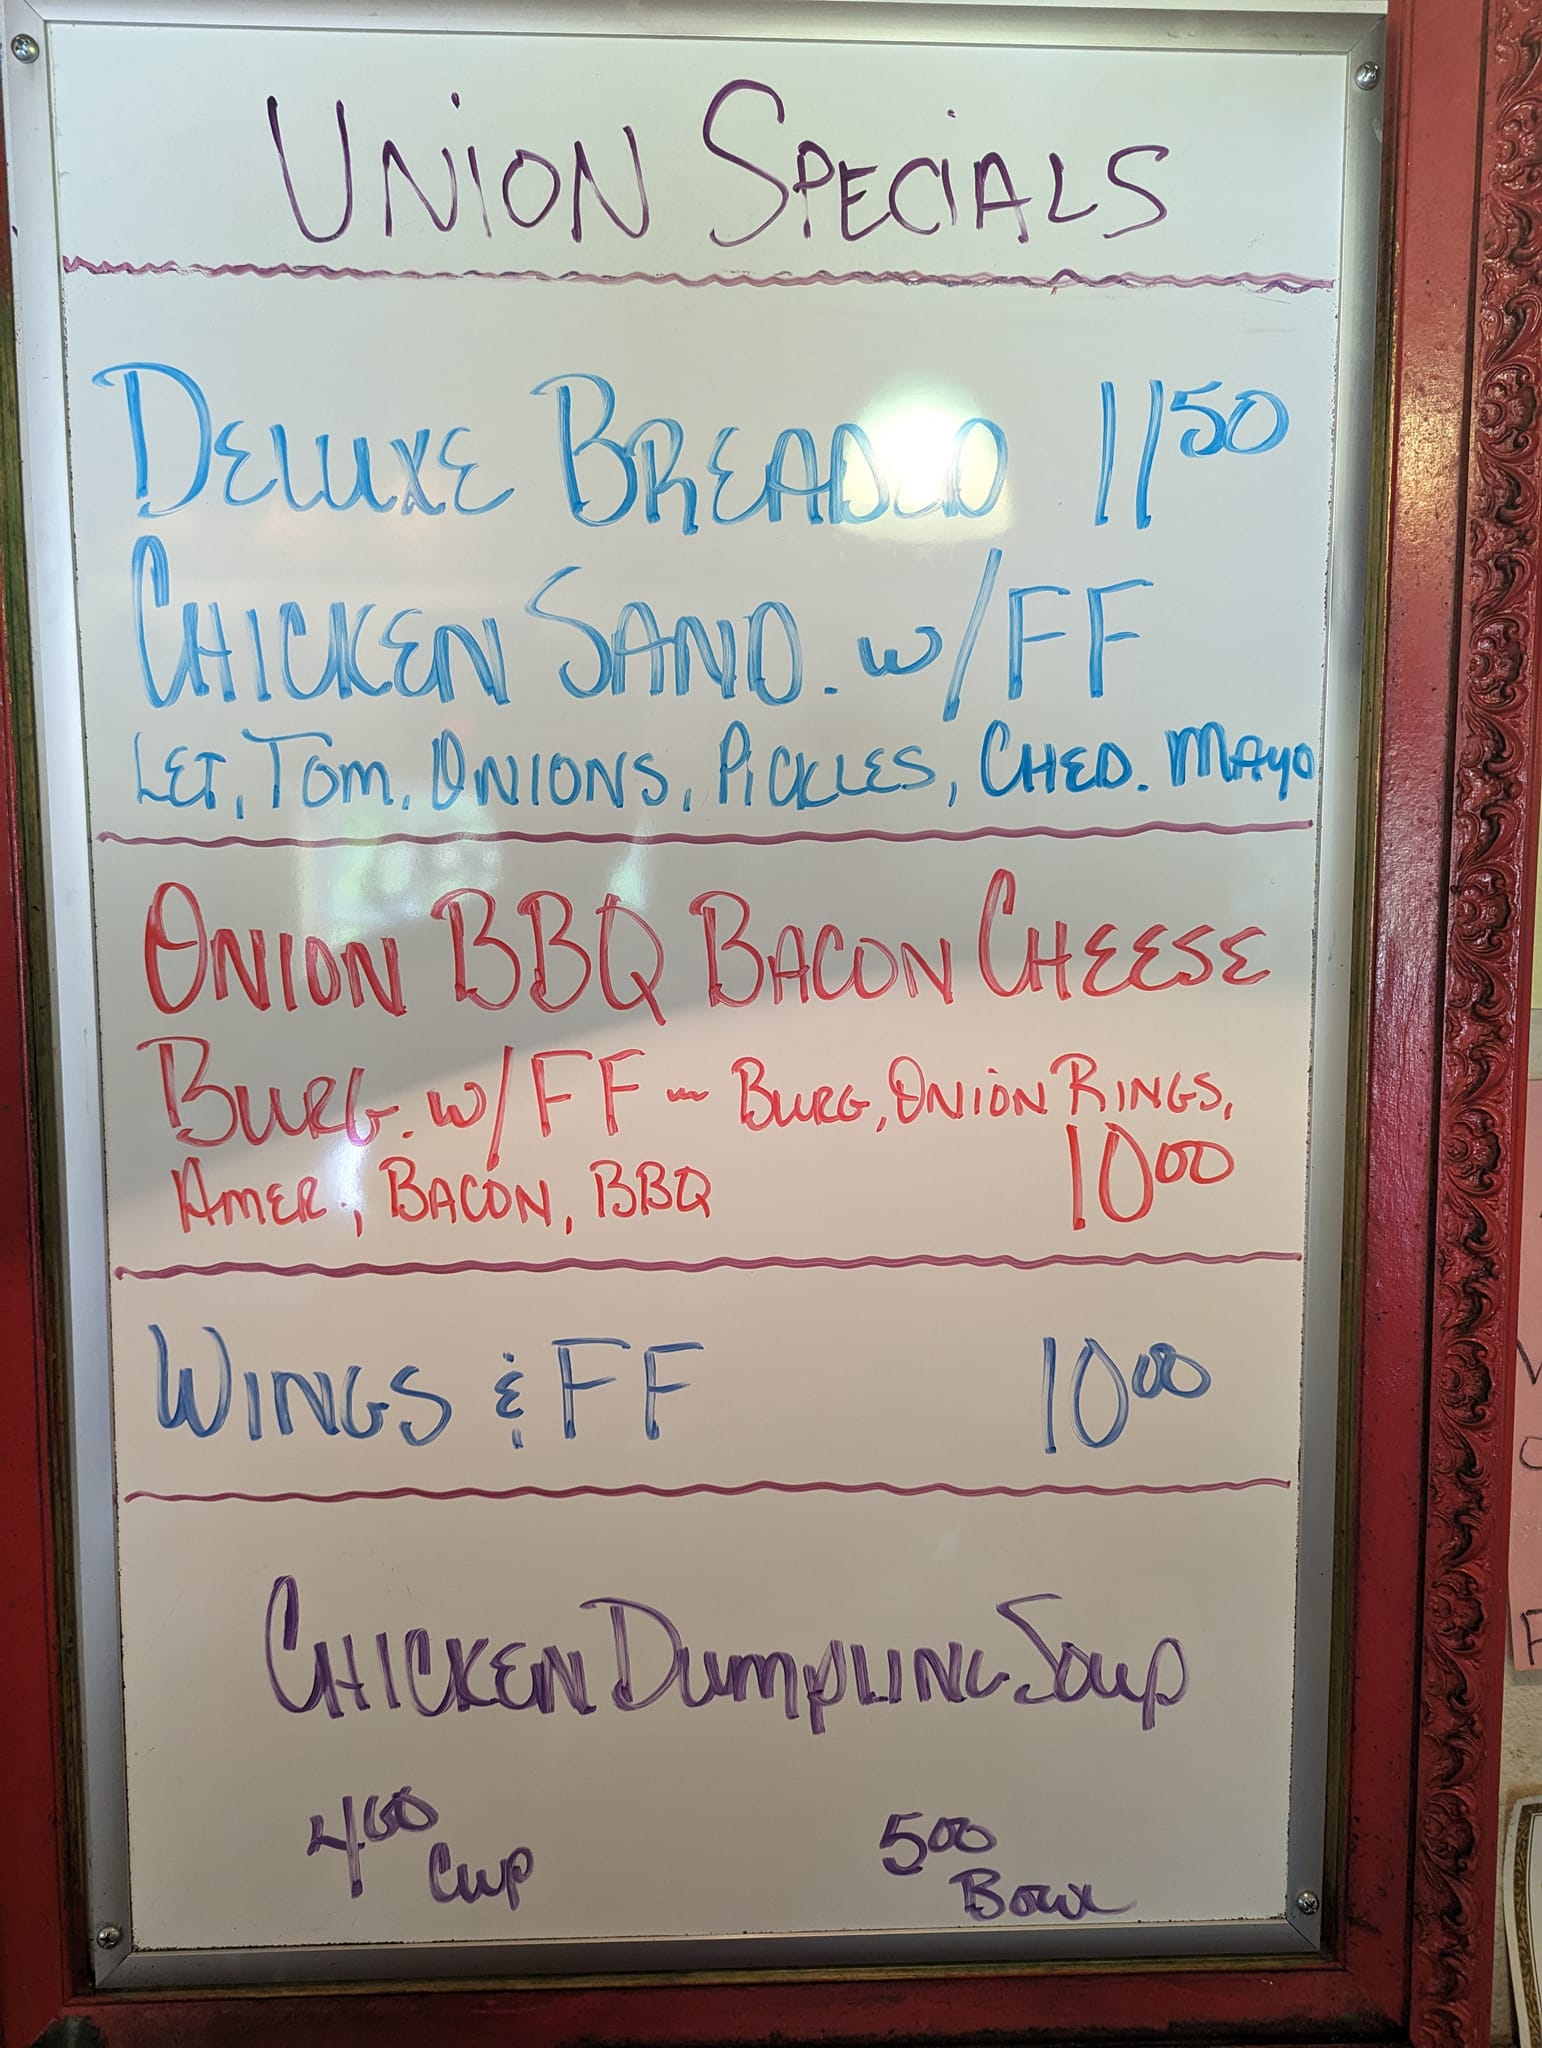 UNION SPECIALS
DELUXE BREADED 11 50
CHICKEN SAND. w/FF
LET, TOM, ONIONS, PICKLES, CHED. MAYO
ONION BBQ BACON CHEESE
BURG. w/FF ~ BURG, ONION RINGS,
AMER., BACON, BBQ 10 00
WINGS & FF 10 00
CHICKEN DUMPLING SOUP
4 00 5 00
Cup Bowl